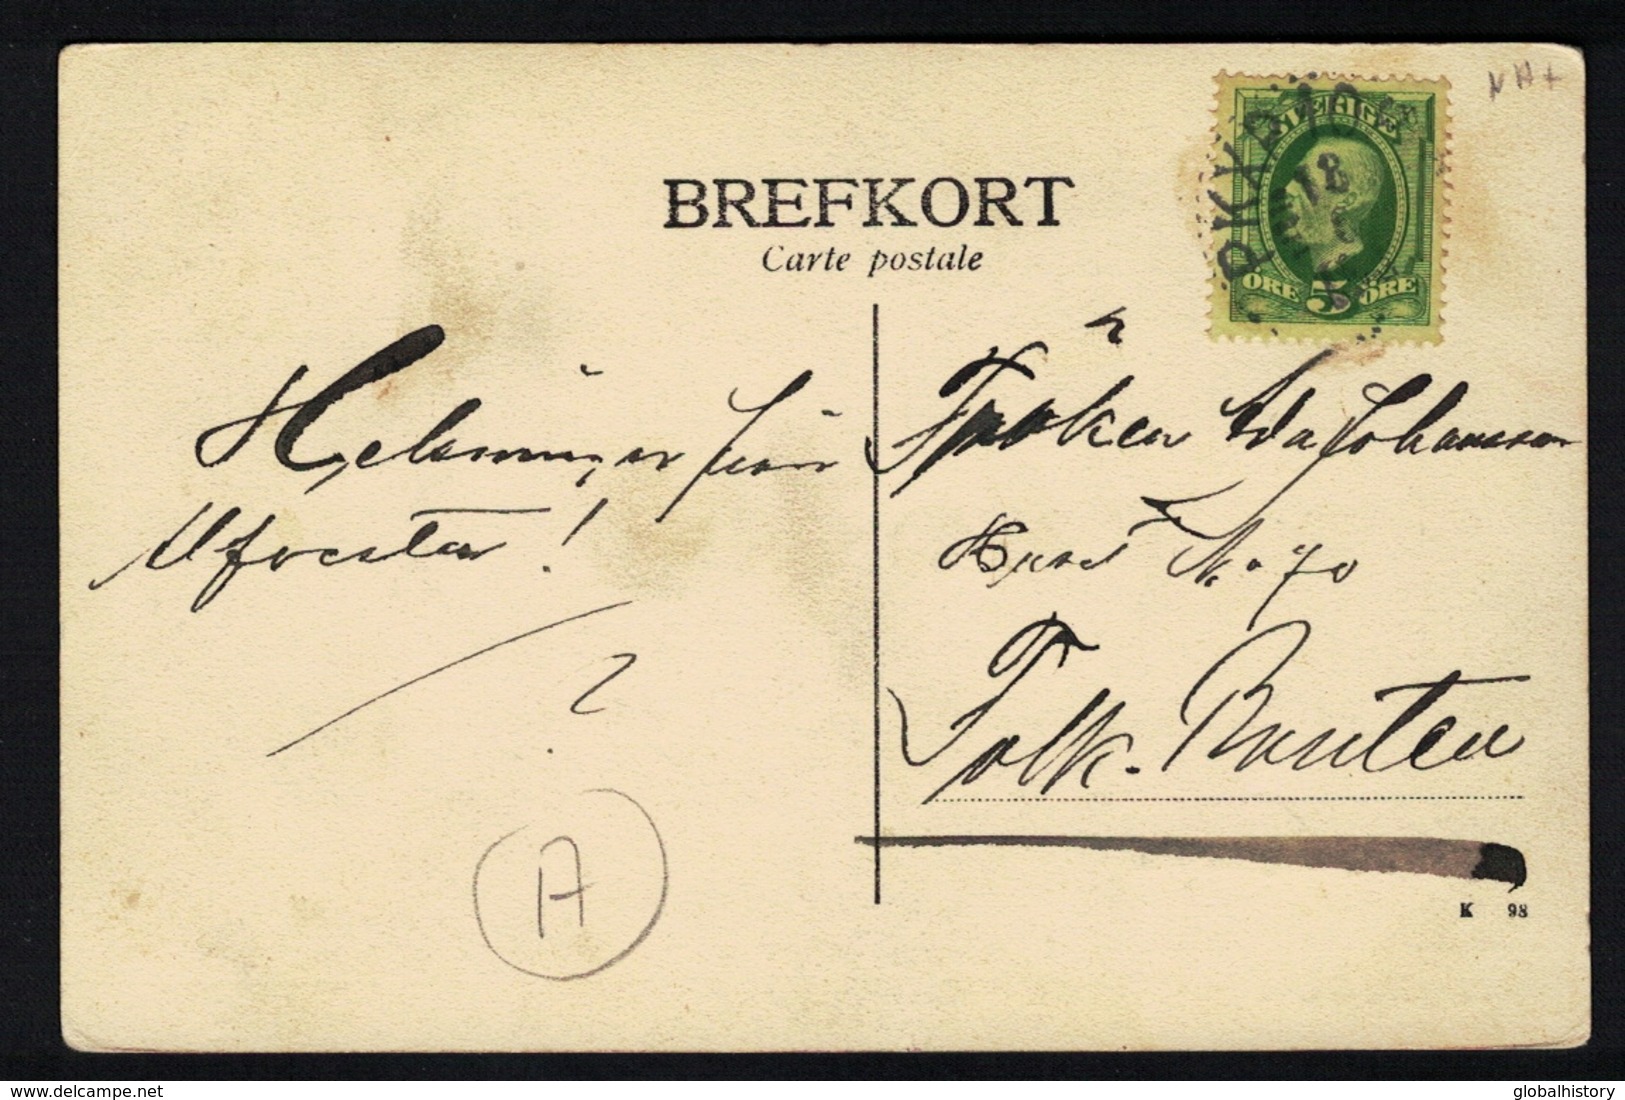 BREFKORT
Carte postale
SVERIGE
18
ÖRE 5 ÖRE
Helsningar från
Ulfvestar!
?
A
Fröken Ida Johansson
Huset No 70
Folk. Banken
K 98
delcampe.net
globalhistory